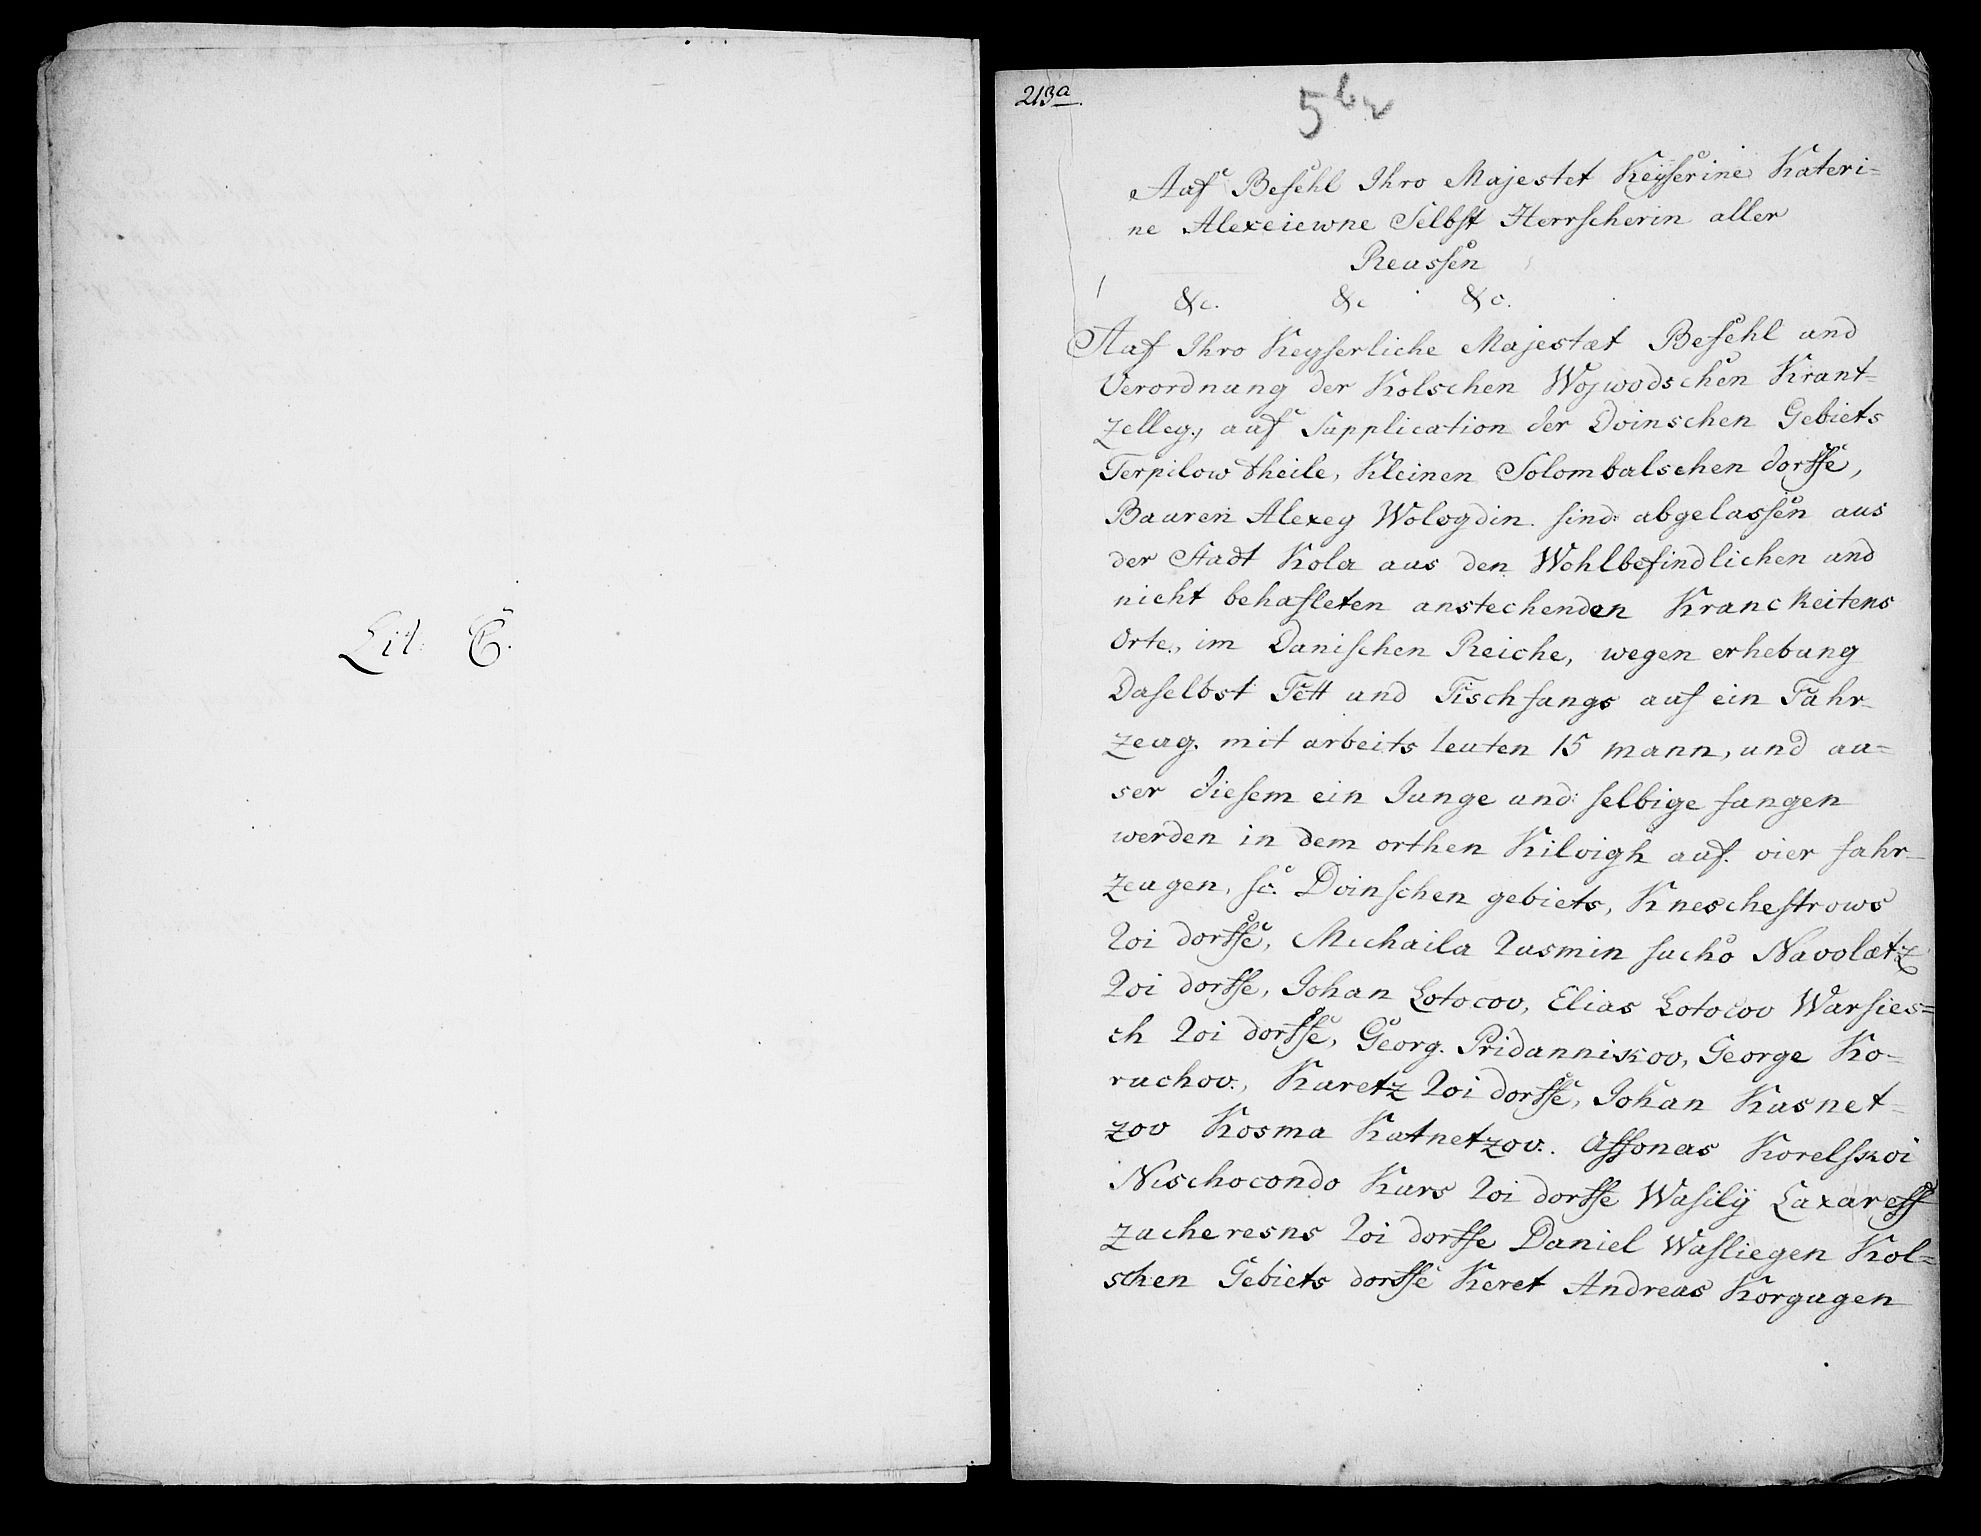 Lit: E.
213a.
5
Auf Befehl Ihro Majestet Keyserine Kateri=
ne Alexeiewne Selbst Herrscherin aller
Reussen
&c. &c &c.
Auf Ihro Keyserliche Majestæt Befehl und
Verordnung der Kolschen Wojwodschen Krant=
zelley, auf Supplication der Dvinschen Gebiets
Terpilow theile, Kleinen Solombalschen dorffe,
Bauren Alexey Wologdin sind abgelassen aus
der Stadt Kola aus den Wohlbefindlichen und
nicht behafleten anstechenden Kranckeitens
Orte, im Danischen Reiche, wegen erhebung
Daselbst Fett und Fischfangs auf ein Fahr=
zeug. mit arbeits leuten 15 mann, und au=
ser diesem ein Junge und selbige fangen
werden in dem orthen Kilvigh auf vier fahr=
zeugen, sc. Dvinschen gebiets, Kneschestrows
koi dorffe, Michaila Kusmin sucho Navolætz
koi dorffe, Johan Lotocov, Elias Lotocov Warsies=
ch koi dorffe, Georg. Pridanniskov, George Ko=
ruchov, Kuretz koi dorffe, Johan Kusnet=
zov Kosma Katnetzov. Affonas Korelskoi
Nischocondo Kurs koi dorffe Wasilÿ Laxareff
zucheresns koi dorffe Daniel Wasliegen Kol=
schen Gebiets dorffe Keret Andreas Korgugen